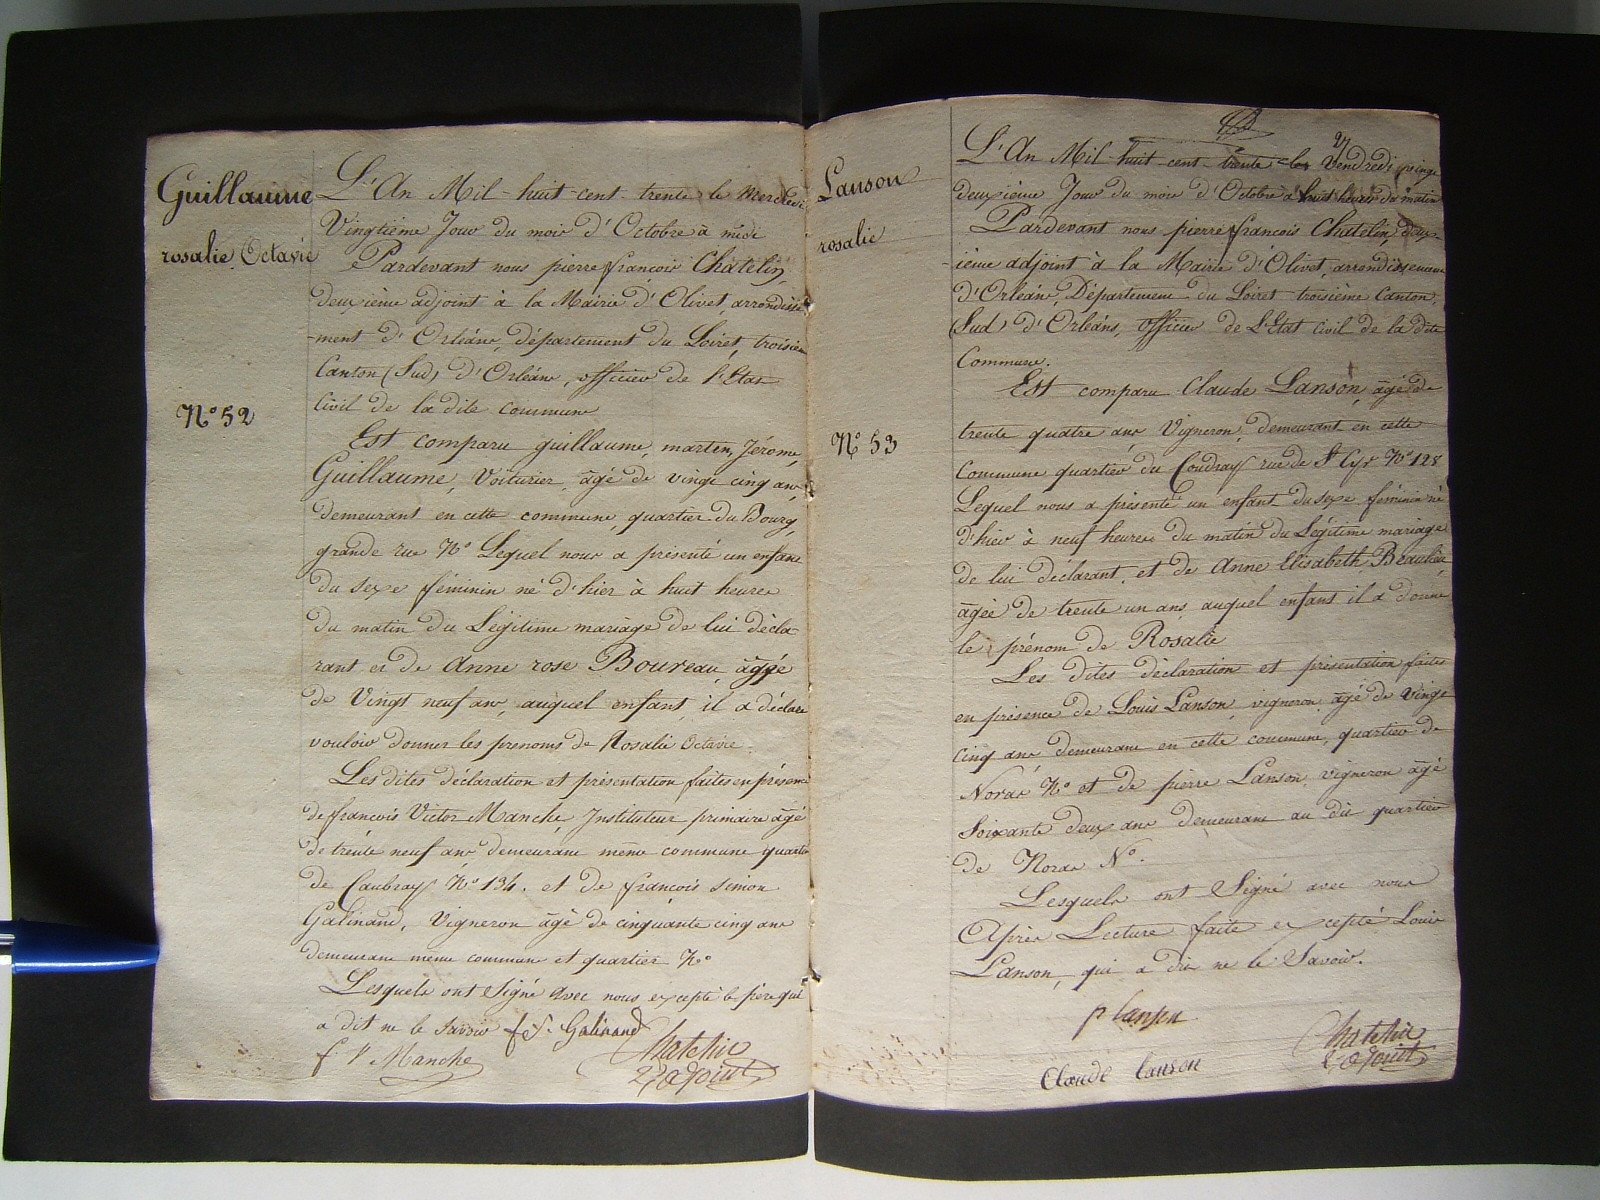 Guillaume
rosalie Octavie
N° 52
L'An Mil-huit cent-trente le Mercredi
Vingtième Jour du mois d'Octobre à midi
Pardevant nous pierre françois Châtelin,
deuxième adjoint à la Mairie d'Olivet, arrondisse
-ment d'Orléans, département du Loiret, troisième
Canton (Sud) d'Orléans, officier de l'Etat
Civil de la dite commune
Est comparu guillaume, martin, Jérome,
Guillaume, Voiturier, âgé de vingt cinq ans,
demeurant en cette commune, quartier du Bourg,
grande rue N° Lequel nous a présenté un enfant
du sexe féminin né d'hier à huit heures
du matin du Légitime mariage de lui décla-
rant et de Anne rose Boureau, âgée
de Vingt neuf ans, auquel enfant, il a déclaré
vouloir donner les prenoms de Rosalie Octavie.
Les dites déclaration et présentation faites en présence
de françois Victor Manche, Instituteur primaire âgé
de trente neuf ans demeurant même commune quartier
de Caubray N° 134. et de françois simon
Galinand, Vigneron âgé de cinquante cinq ans
demeurant même commune et quartier N°
Lesquels ont Signé avec nous excepté le père qui
a dit ne le savoir f. s. Galinand
f V Manche
Chatelin
2e adjoint
Lanson
rosalie
N° 53
L'An Mil-huit cent-trente le Vendredi vingt
deuxième Jour du mois d'Octobre à huit heures du matin
Pardevant nous pierre françois Chatelin, deux-
ième adjoint à la Mairie d'Olivet, arrondissement
d'Orléans, Département du Loiret troisième Canton,
(Sud) d'Orléans, officier de L'Etat Civil de la dite
Commune.
Est comparu Claude Lanson, âgé de
trente quatre ans Vigneron, demeurant en cette
Commune quartier du Coudray rue de St Cyr N° 128
Lequel nous a présenté un enfant du sexe féminin né
d'hier à neuf heures du matin du Légitime mariage
de lui déclarant, et de Anne Elisabeth Beaulieu,
âgée de trente un ans, auquel enfant il a donné
le prénom de Rosalie
Les dites déclaration et présentation faites
en présence de Louis Lanson, vigneron, âgé de vingt
cinq ans demeurant en cette commune, quartier de
Noras N° et de pierre Lanson, vigneron âgé
Soixante deux ans demeurant au dit quartier
de Noras N°.
Lesquels ont Signé avec nous
Après Lecture faite excepté Louis
Lanson, qui a dit ne le Savoir.
p lanson
Claude lanson
Chatelin
2e adjoint